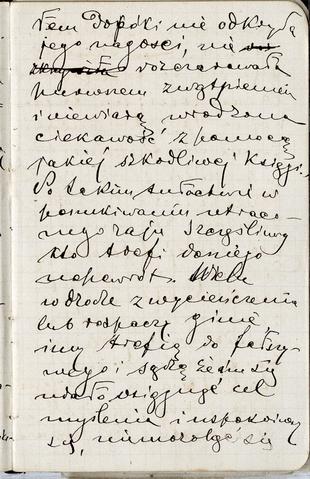 tem Dopóki nie odkryła
jego nagości, nie
rozczarowała
pierwszem zwątpieniem
i niewiarą wrodzona
ciekawość z pomocą
jakiej szkodliwej Księgi.
Po takim tułactwie w
poszukiwaniu utraco-
nego raju szczęśliwy
kto trafi do niego
napowrót. Wielu
w drodze z wycieńczenia
lub rozpaczy ginie
inny trafią do fałszy-
wego i sądzą że im się
udało osiągnąć cel
myślenia i uspokoiwszy
się, się